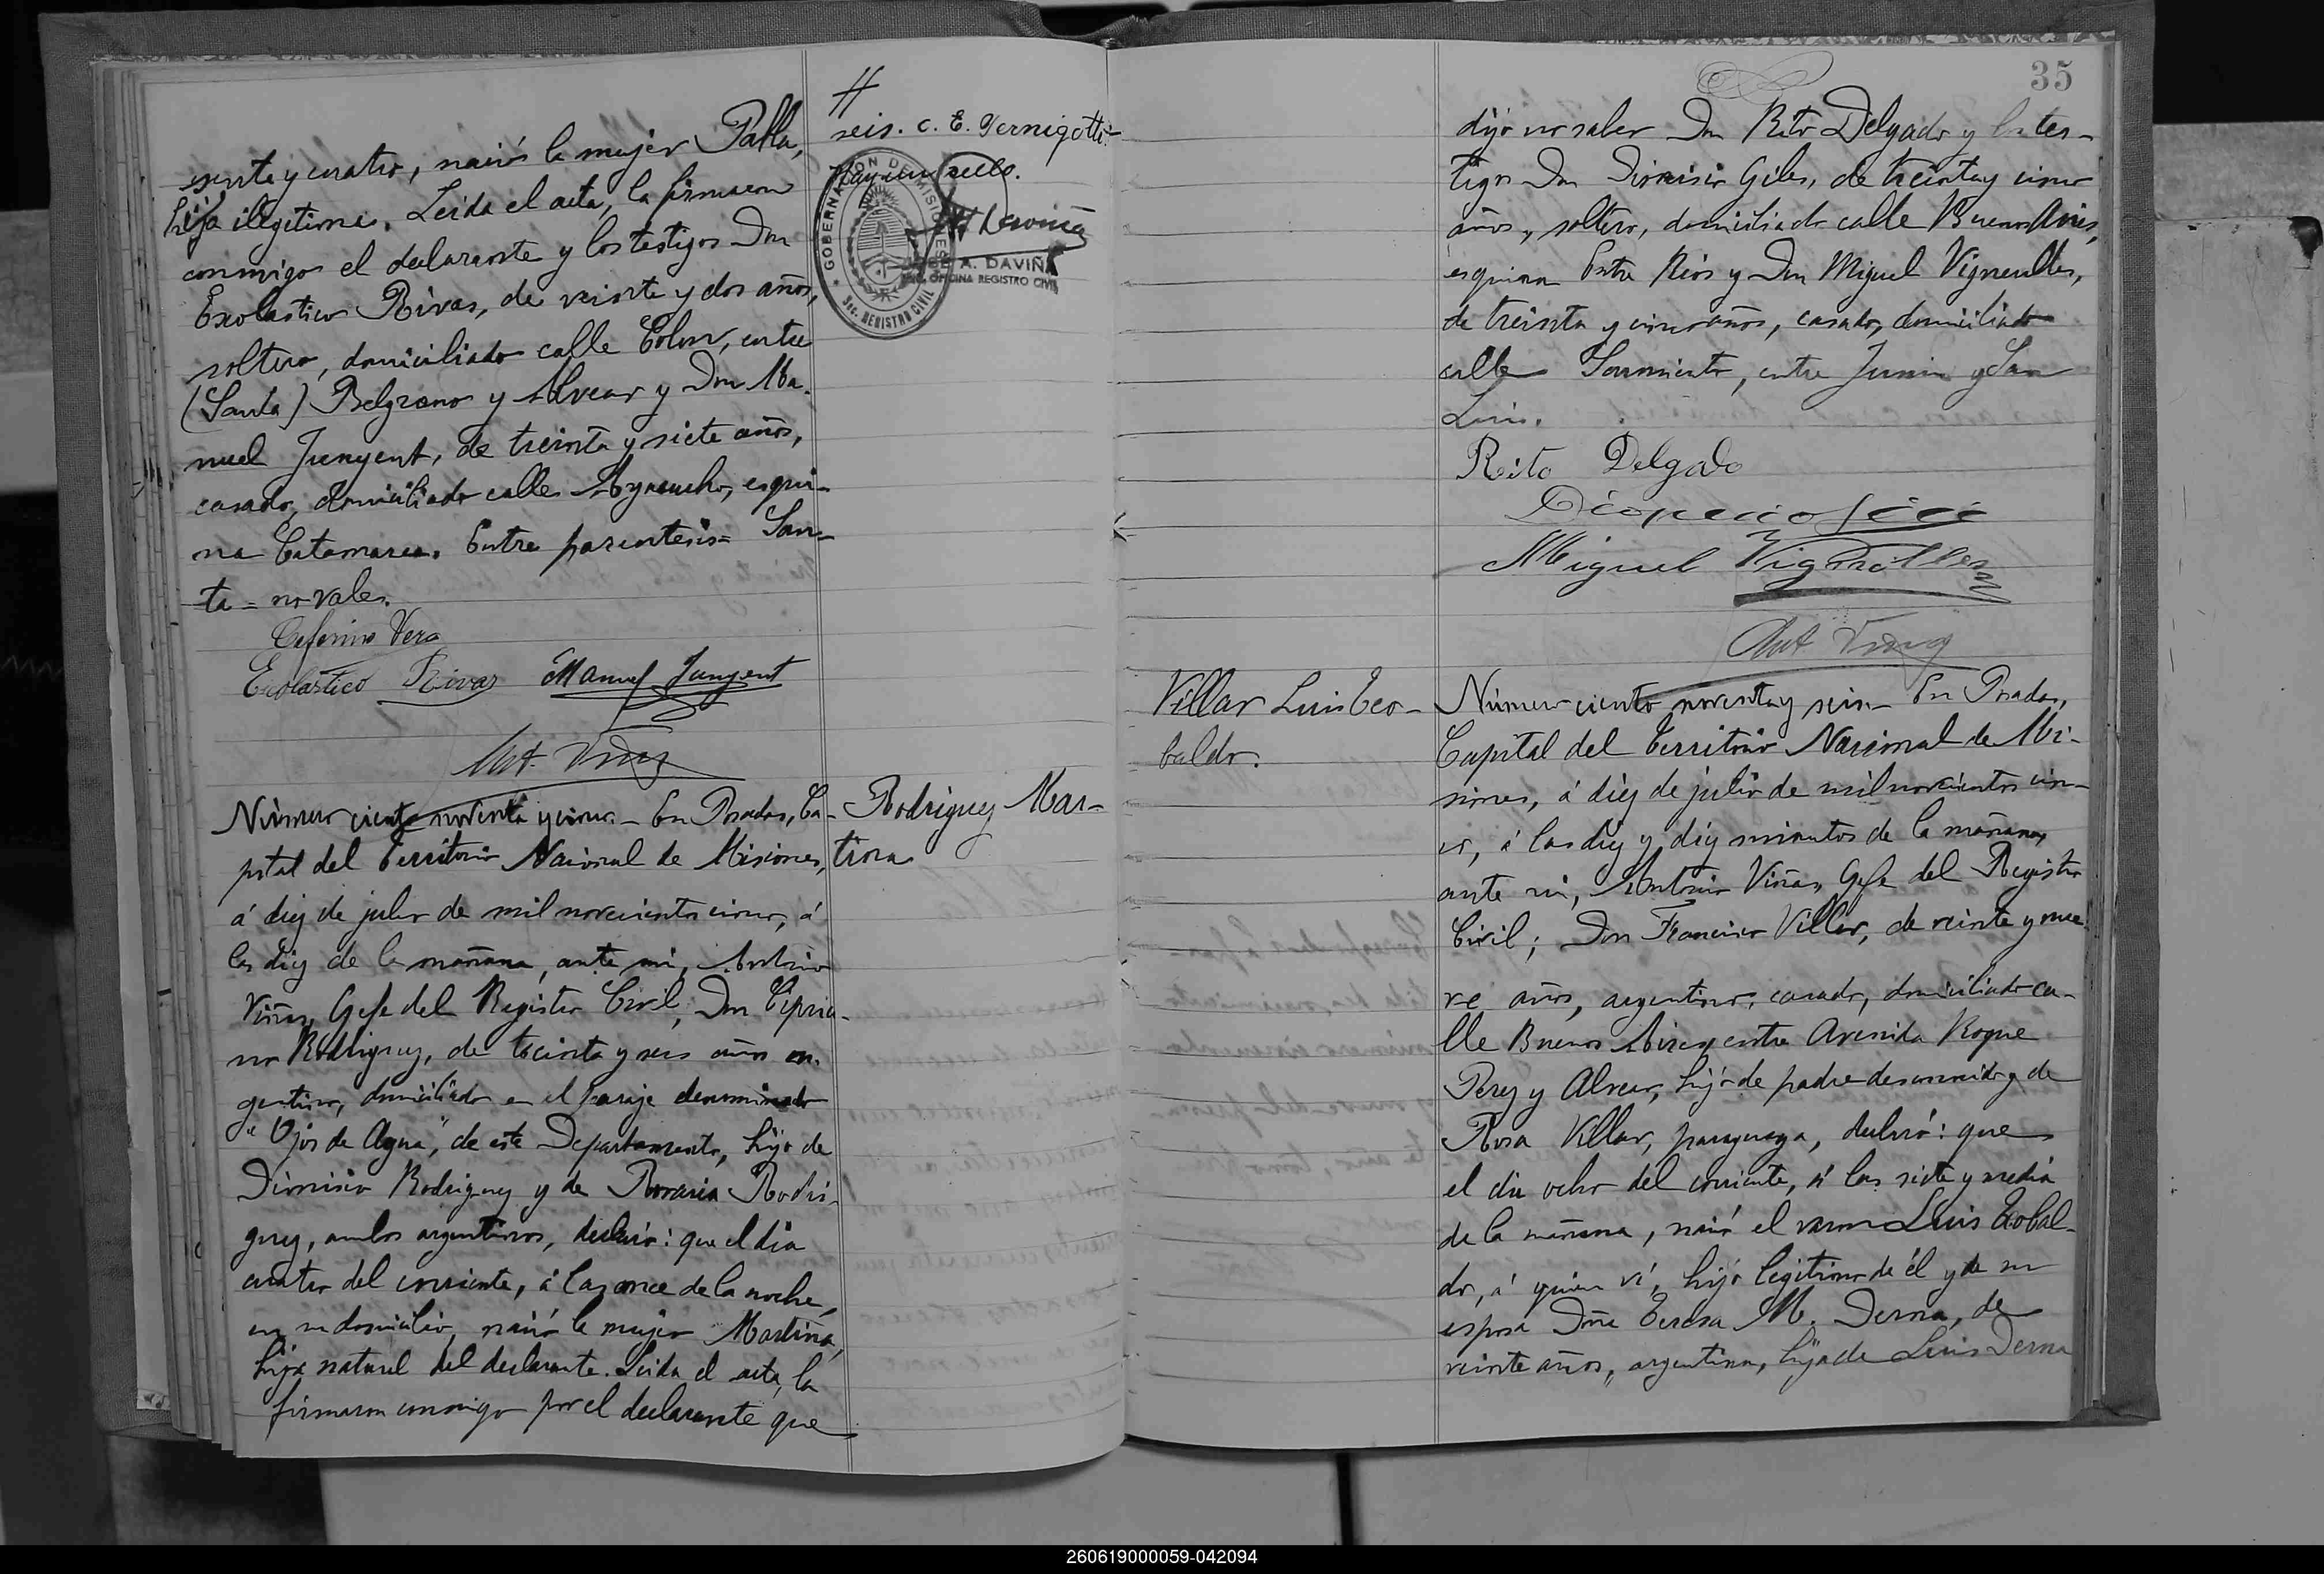 senta y cuatro, nació la mujer Pabla,
hija ilegitima. Leida el acta, la firmaron
conmigo el declarante y los testigos Don
Escolastico Rivas, de veinte y dos años,
soltero, domiciliado calle Colon, entre
(Santa) Belgrano y Alvear y Don Ma-
nuel Junyent, de treinta y siete años,
casado, domiciliado calle Ayacucho, esqui-
na Catamarca. Entre parentesis = San-
ta = no vale.
Ceferino Vera
Escolastico Rivas Manuel Junyent
Ant. Viñas
//
seis. C. E. Vernigotti
Hay un sello.
GOBERNACION DE MISIONES
Sec. REGISTRO CIVIL
JOSE A. DAVIÑA
OFICINA REGISTRO CIVIL
Rodriguez Mar-
tina
Número ciento noventa y cinco.- En Posadas, Ca-
pital del Territorio Nacional de Misiones,
á diez de julio de mil novecientos cinco, á
las diez de la mañana, ante mi, Antonio
Viñas, Gefe del Registro Civil; Don Cipria-
no Rodriguez, de treinta y seis años ar-
gentino, domiciliado en el paraje denominado
"Ojos de Agua", de este Departamento, hijo de
Dionisio Rodriguez y de Rosaria Rodri-
guez, ambos argentinos, declaró: que el dia
cuatro del corriente, á las once de la noche,
en su domicilio, nació la mujer Martina,
hija natural del declarante. Leida el acta, la
firmaron conmigo por el declarante que
35
dijo no saber Don Rito Delgado y los tes-
tigos Don Dionisio Giles, de treinta y cinco
años, soltero, domiciliado calle Buenos Aires,
esquina Entre Rios y Don Miguel Vignolles,
de treinta y cinco años, casado, domiciliado
calle Sarmiento, entre Junin y San
Luis.
Rito Delgado
Miguel Vignolles
Ant Viñas
Villar Luis Teo-
baldo.
Número ciento noventa y seis.- En Posadas,
Capital del Territorio Nacional de Mi-
siones, á diez de julio de mil novecientos cin-
co, á las diez y diez minutos de la mañana,
ante mi, Antonio Viñas, Gefe del Registro
Civil; Don Francisco Villar, de veinte y nue-
ve años, argentino, casado, domiciliado ca-
lle Buenos Aires, entre Avenida Roque
Perez y Alvear, hijo de padre desconocido y de
Rosa Villar, paraguaya, declaró: que
el dia ocho del corriente, á las siete y media
de la mañana, nació el varon Luis Teobal-
do, á quien ví, hijo legitimo de él y de su
esposa Doña Teresa M. Derna, de
veinte años, argentina, hija de Luis Derna
260619000059-042094